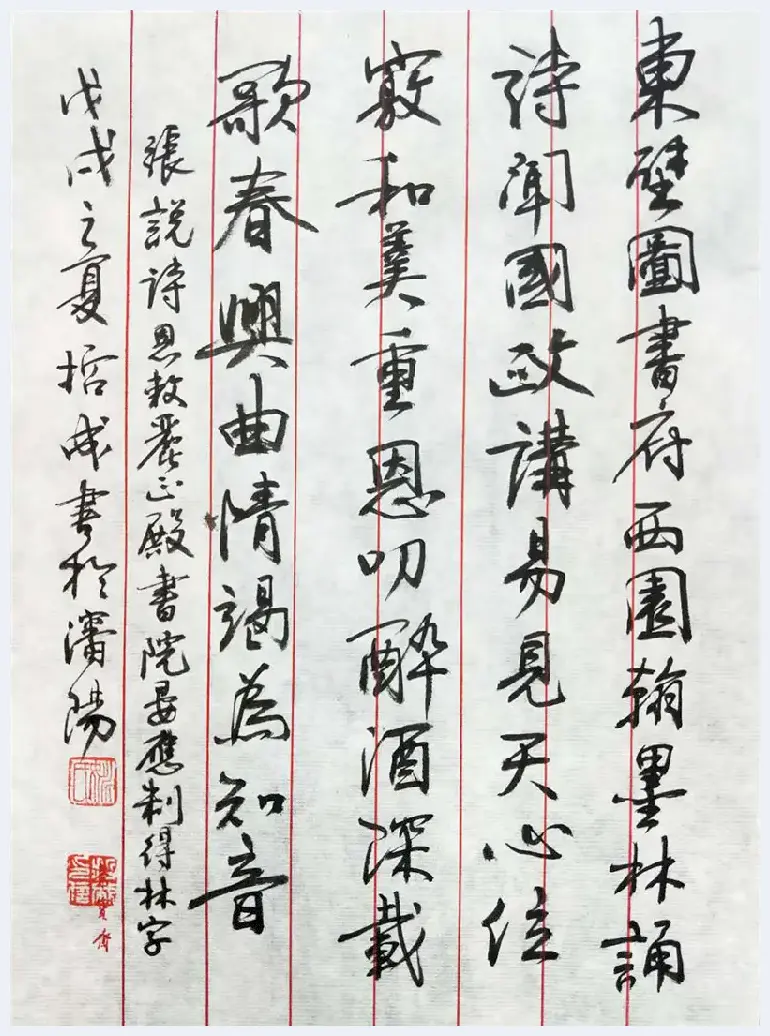 東壁圖書府西園翰墨林誦
詩聞國政講易見天心位
竊和羹重恩叨醉酒深載
歌春興曲情竭為知音
張說詩恩敕麗正殿書院宴應制得林字
戊戌之夏成書於瀋陽